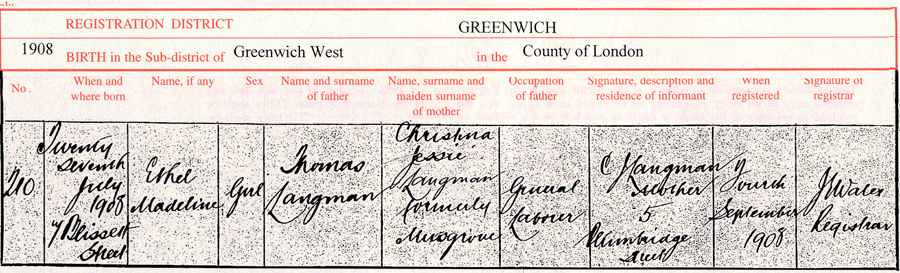 REGISTRATION DISTRICT GREENWICH
1908 BIRTH in the Sub-district of Greenwich West in the County of London
No. When and where born Name, if any Sex Name and surname of father Name, surname and maiden surname of mother Occupation of father Signature, description and residence of informant When registered Signature of registrar
210
Twenty
Seventh
July
1908
7 Blissett
Street
Ethel
Madeline
Girl
Thomas
Langman
Christina
Jessie
Langman
formerly
Musgrove
General
Labour
C J Langman
Mother
5
Street
Fourth
September
1908
Registrar